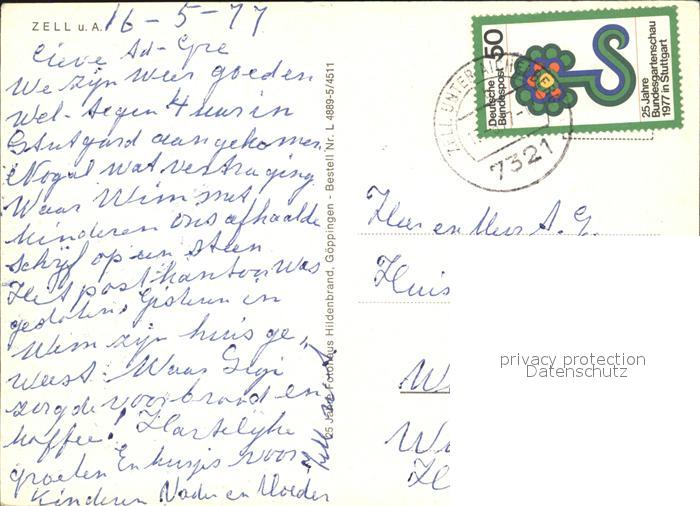 ZELL u. A.
16-5-77
Lieve Ad-Gre
We zijn weer goeden
wel-tegen 4 uur in
Stutgard aangekomen
Nogal wat vertraging
Waar Wim met
kinderen ons afhaalde
schrijf op een steen
Het postkantoor was
gesloten. Gisteren in
Wim zijn huis ge„
weest. Waar Gigi
zorgde voor brood en
koffie! Hartelijke
groeten En kusjes voor
Kinderen Vader en Moeder
25 Jahre Fotohaus Hildenbrand, Göppingen - Bestell Nr. L 4889-5/4511
Deutsche
Bundespost
50
25 Jahre
Bundesgartenschau
1977 in Stuttgart
ZELL UNTER AICHELBERG
7321
Heer en Mevr A. G.
Huis
privacy protection
Datenschutz